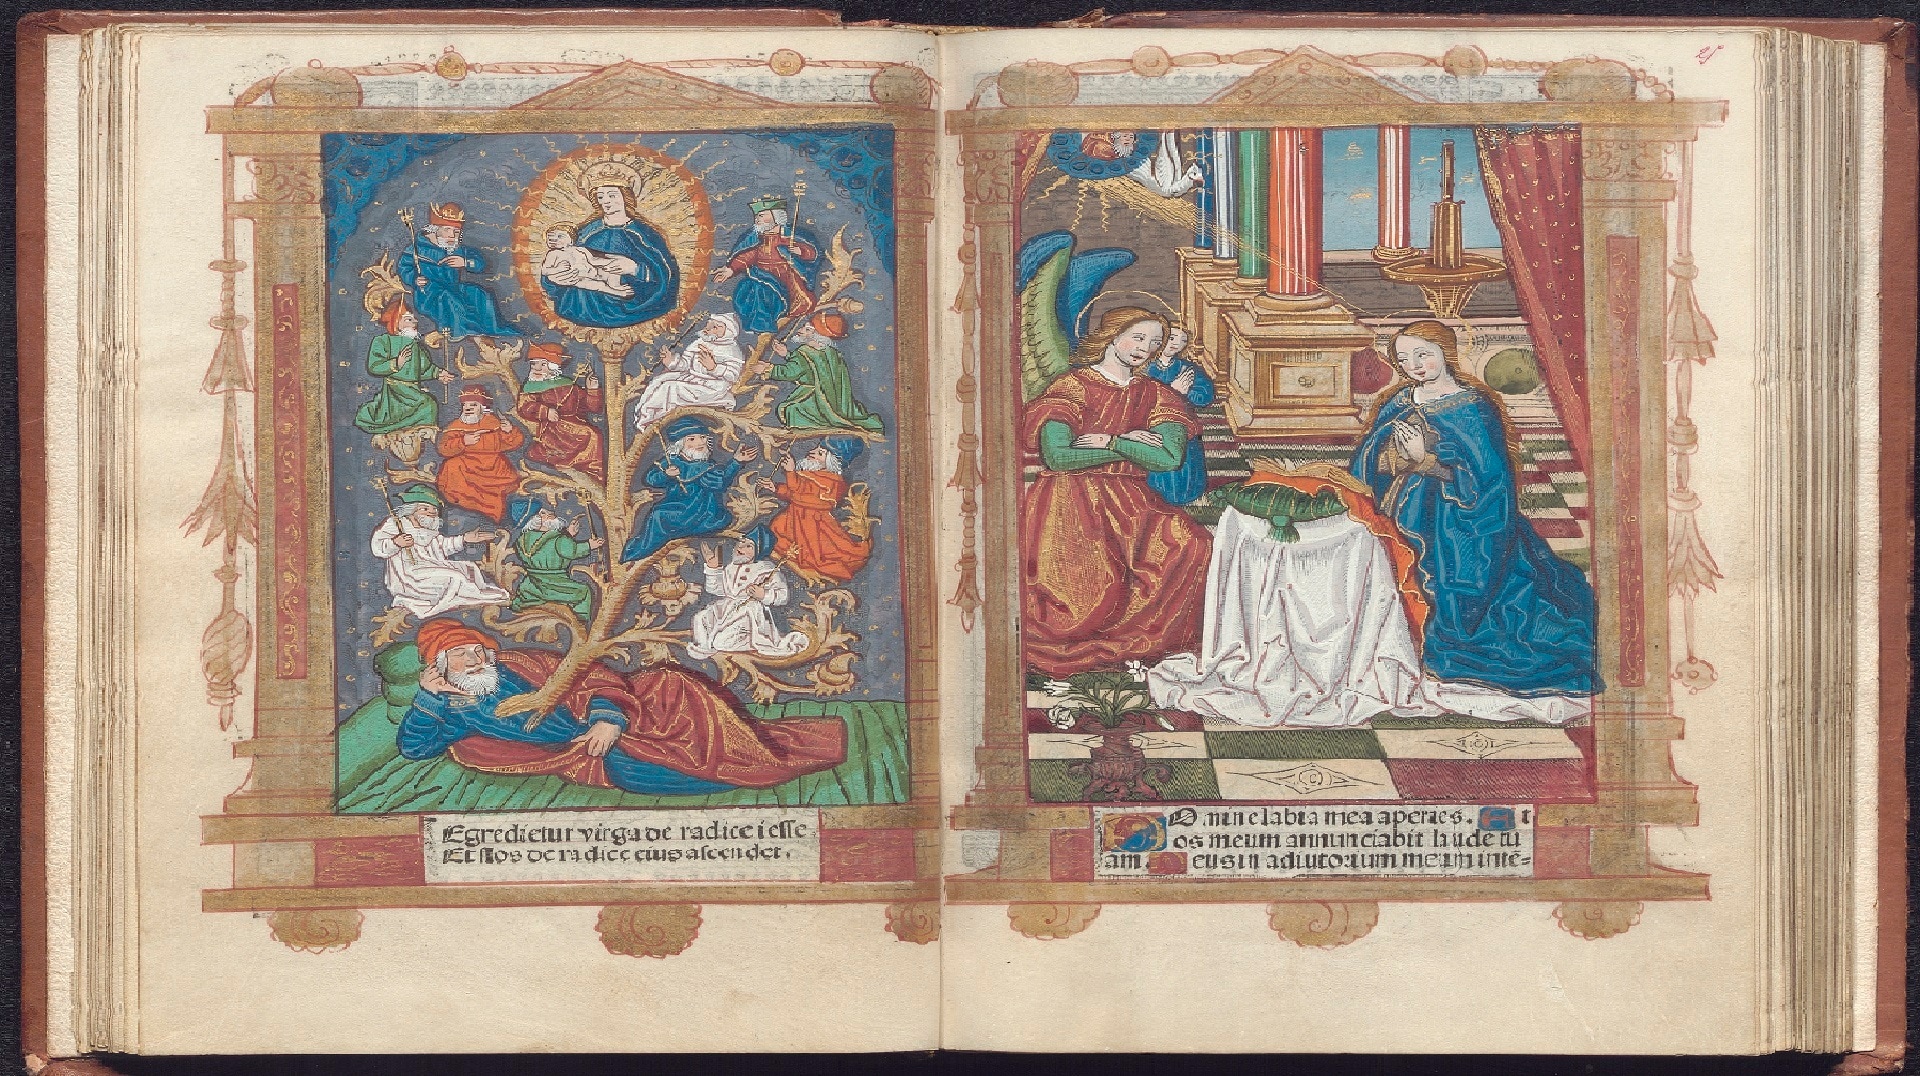 Egredietur virga de radice iesse
Et flos de radice eius ascendet.
25
Domine labia mea aperies. Et
os meum annunciabit laude tu
am. Deus in adiutorium meum inte=